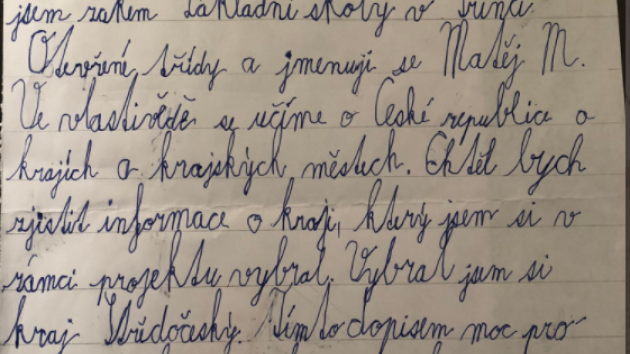 jsem žákem základní školy v Třinci.
Otevřené třídy a jmenuji se Matěj M.
Ve vlastivědě se učíme o České republice a
krajích a krajských městech. Chtěl bych
zjistit informace o kraji, který jsem si v
rámci projektu vybral. Vybral jsem si
kraj Středočeský. Tímto dopisem moc pro-